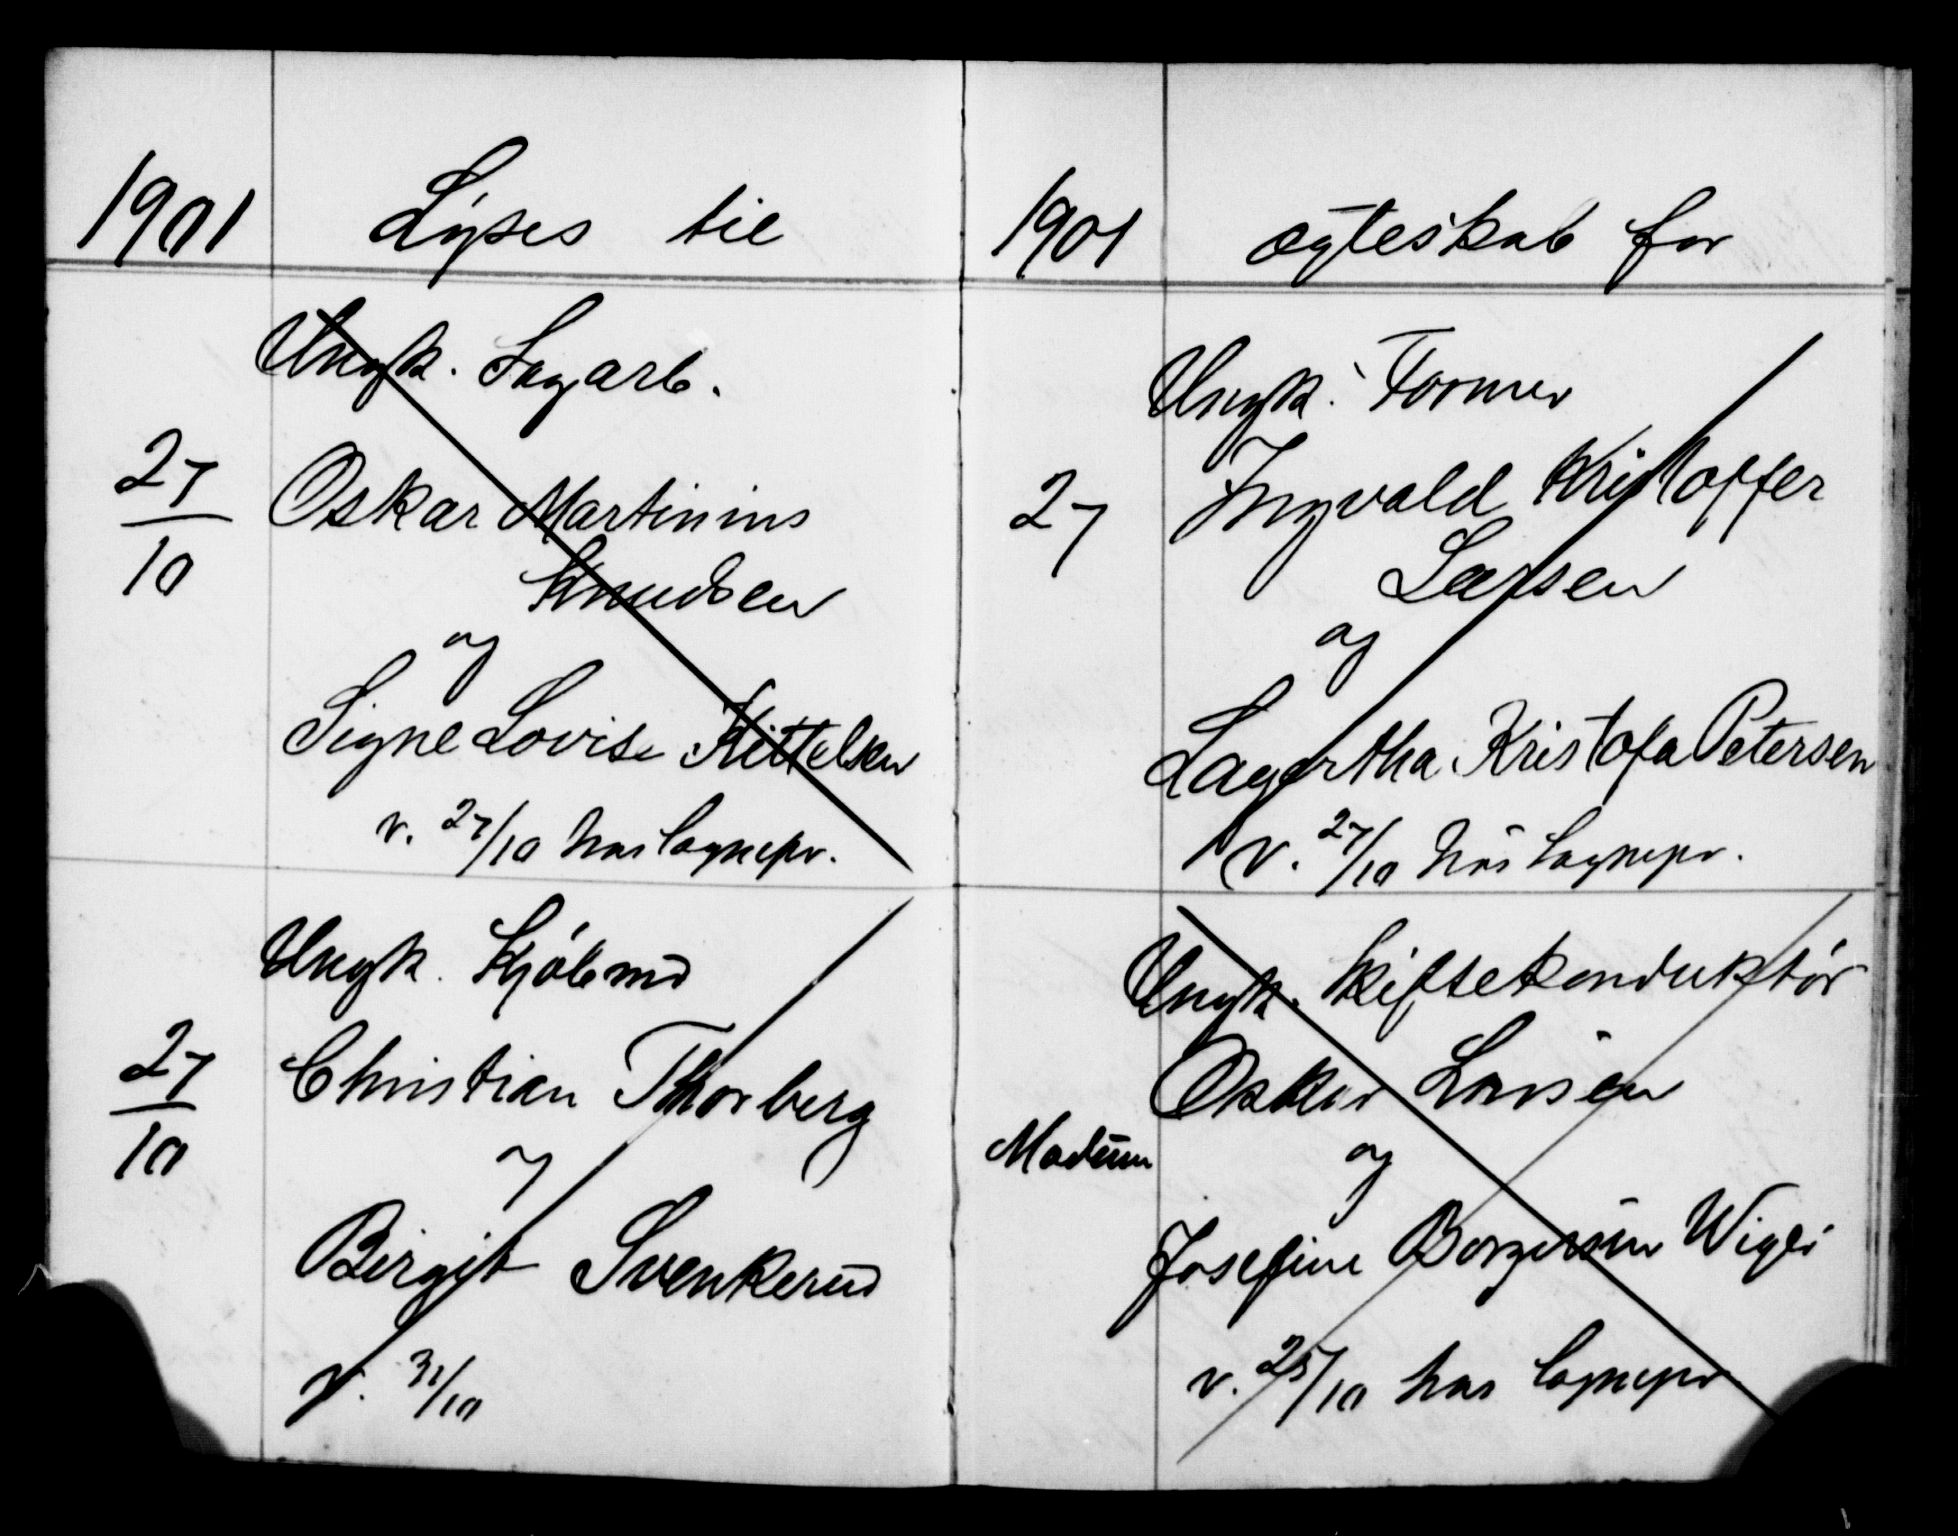 1901 Lyses til
Ungk. Sagarb.
27/10 Oskar Martinius
Knudsen
og
Signe Lovise Kittelsen
v. 27/10 hos Sognepr.
Ungk. Kjöbmd
27/10 Christian Thorberg
og
Birgit Svenkerud
v. 31/10
1901 ægteskab for
Ungk. Former
27 Ingvald Kristoffer
Larsen
og
Lagertha Kristofa Petersen
v. 27/10 hos Sognepr.
Ungk. Skiftekonduktör
Oskar Larsen
Modum og
Josefine Borgersen
v. 25/10 hos Sognepr